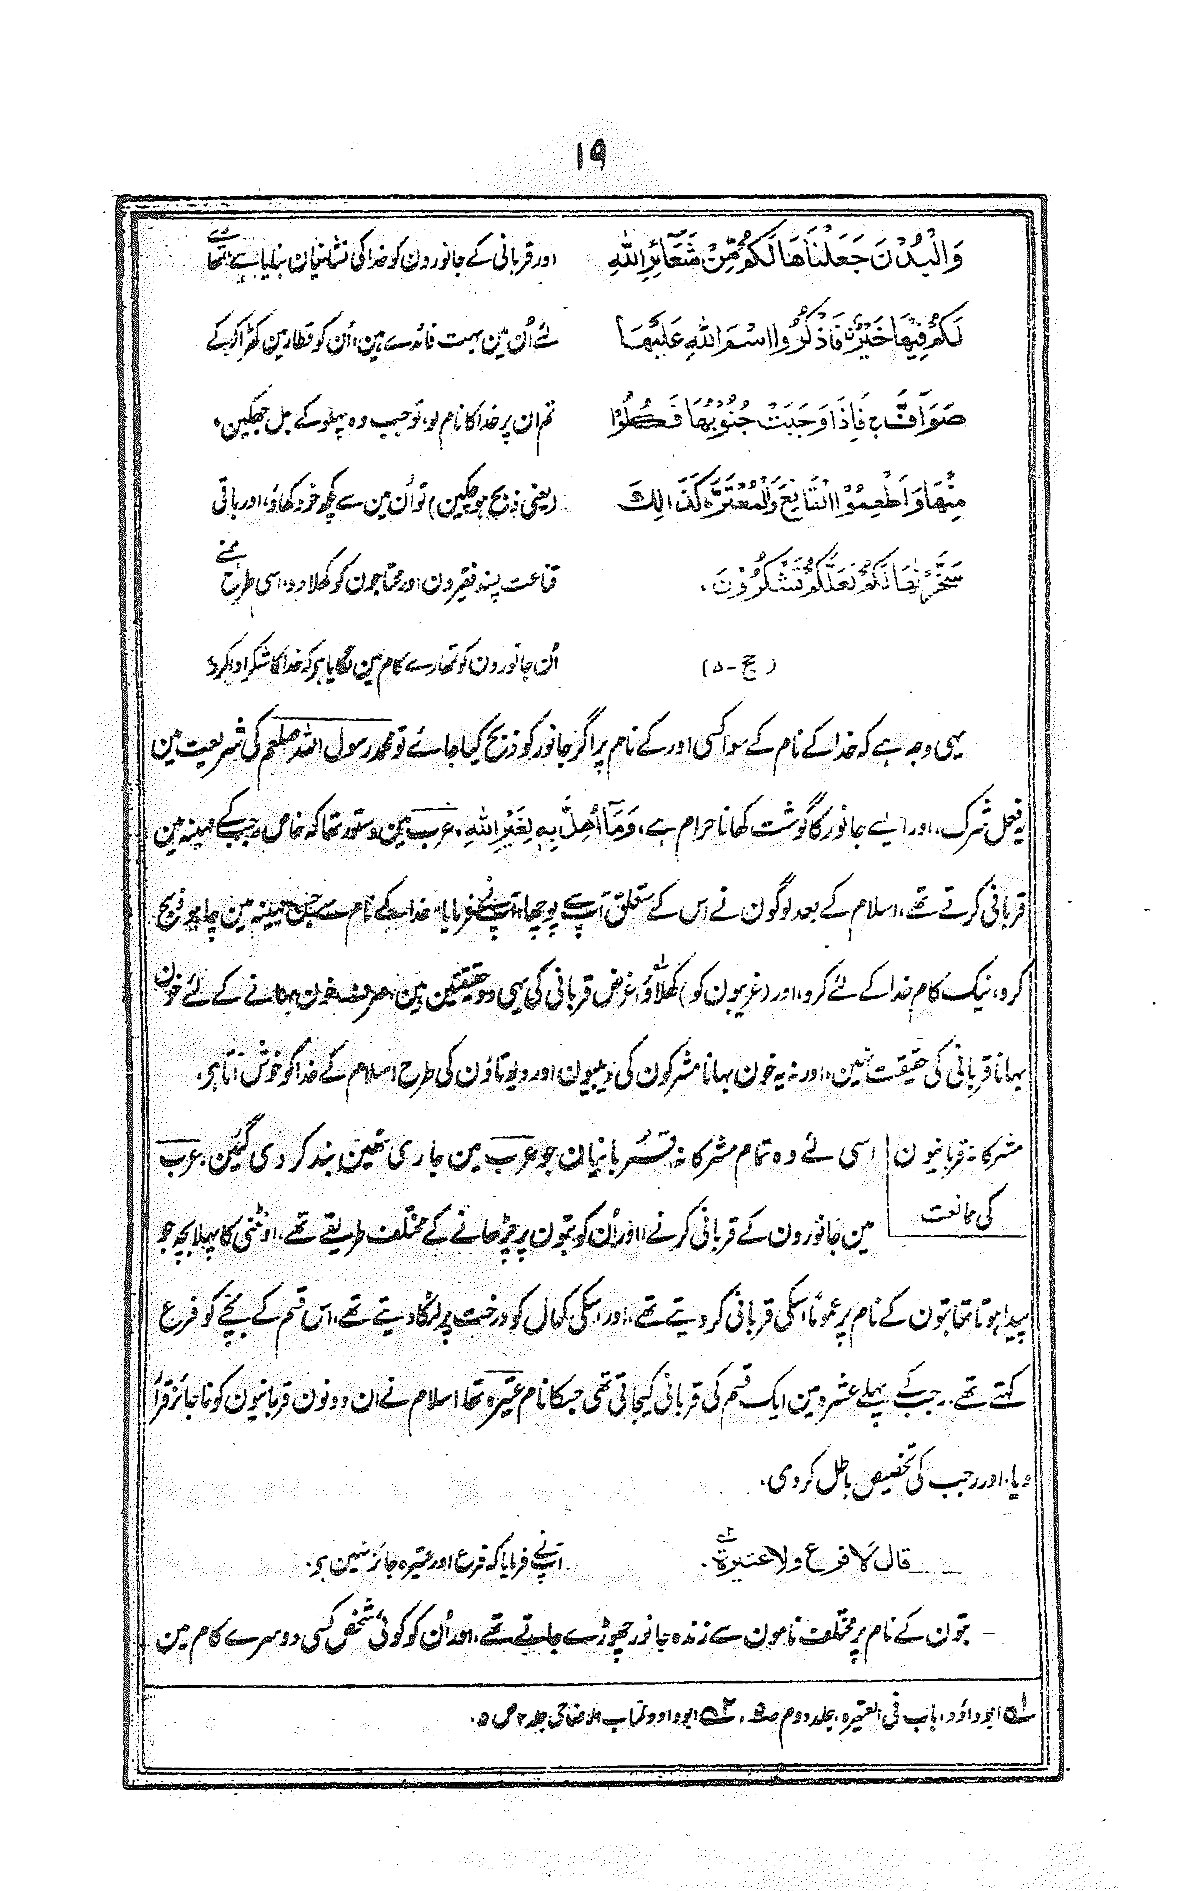 ۱۹
وَالْبُدْنَ جَعَلْنَاهَا لَكُمْ مِّنْ شَعَآئِرِ اللّٰهِ
اور قربانی کے جانورون کو خدا کی نشانیان بنایا ہے، تمھارے
لَكُمْ فِيْهَا خَيْرٌ فَاذْكُرُوا اسْمَ اللّٰهِ عَلَيْهَا
لئے اُن مین بہت فائدے ہین، اُن کو قطار مین کھڑا کر کے
صَوَآفَّ ۚ فَاِذَا وَجَبَتْ جُنُوْبُهَا فَكُلُوْا
تم ان پر خدا کا نام لو، تو جب وہ پہلو کے بل جھکین،
مِنْهَا وَاَطْعِمُوْا الْقَانِعَ وَالْمُعْتَرَّ كَذٰالِكَ
(یعنی ذبح ہو چکین) تو اُن مین سے کچھ خود کھاؤ، اور باقی
سَخَّرْنٰهَا لَكُمْ لَعَلَّكُمْ تَشْكُرُوْنَ.
قناعت پسند فقیرون اور محتاجون کو کھلا دو، اسی طرح ہمنے
(حج - ۵)
اُن جانورون کو تمھارے کام مین لگایا ہو کہ خدا کا شکر ادا کرو،
یہی وجہ ہے کہ خدا کے نام کے سوا کسی اور کے نام پر اگر جانور کو ذبح کیا جائے تو محمد رسول اللہ صلعم کی شریعت مین
یہ فعل شرک، اور ایسے جانور کا گوشت کھانا حرام ہے، وَمَآ اُهِلَّ بِهٖ لِغَيْرِ اللّٰهِ، عرب مین دستور تھا کہ خاص رجب کے مہینہ مین
قربانی کرتے تھے، اسلام کے بعد لوگون نے اس کے متعلق آپ سے پوچھا، آپنے فرمایا، خدا کے نام سے جس مہینہ مین چاہو ذبح
کرو، نیک کام خدا کے لئے کرو، اور (غریبون کو) کھلاؤ، غرض قربانی کی یہی دو حقیقتین ہین، صرف خون بہانے کے لئے خون
بہانا قربانی کی حقیقت نہین، اور نہ یہ خون بہانا مشرکون کی دیبیون اور دیوتاؤن کی طرح اسلام کے خدا کو خوش آتا ہو،
مشرکانہ قربانیون
کی ممانعت
اسی لئے وہ تمام مشرکانہ قربانیان جو عرب مین جاری تھین، بند کر دی گئین، عرب
مین جانورون کے قربانی کرنے، اور اُن کو بتون پر چڑھانے کے مختلف طریقے تھے، اونٹنی کا پہلا بچہ جو
پیدا ہوتا تھا بتون کے نام پر عموماً اسکی قربانی کر دیتے تھے، اور اسکی کھال کو درخت پر لٹکا دیتے تھے، اس قسم کے بچے کو فرع
کہتے تھے، رجب کے پہلے عشرہ مین ایک قسم کی قربانی کیجاتی تھی جسکا نام عتیرہ تھا، اسلام نے ان دونون قربانیون کو ناجائز قرا
دیا، اور رجب کی تخصیص باطل کر دی،
قال لا فرع ولا عتيرة،
آپنے فرمایا کہ فرع اور عتیرہ جائز نہین ہو،
بتون کے نام پر مختلف نامون سے زندہ جانور چھوڑے جاتے تھے، اور اُن کو کوئی شخص کسی دوسرے کام مین
لہ ابو داؤد، باب فی العتیرہ، جلد دوم ص۵، ۲ہ ابو داؤد کتاب الاضاحی جلد ۲ ص ۵،